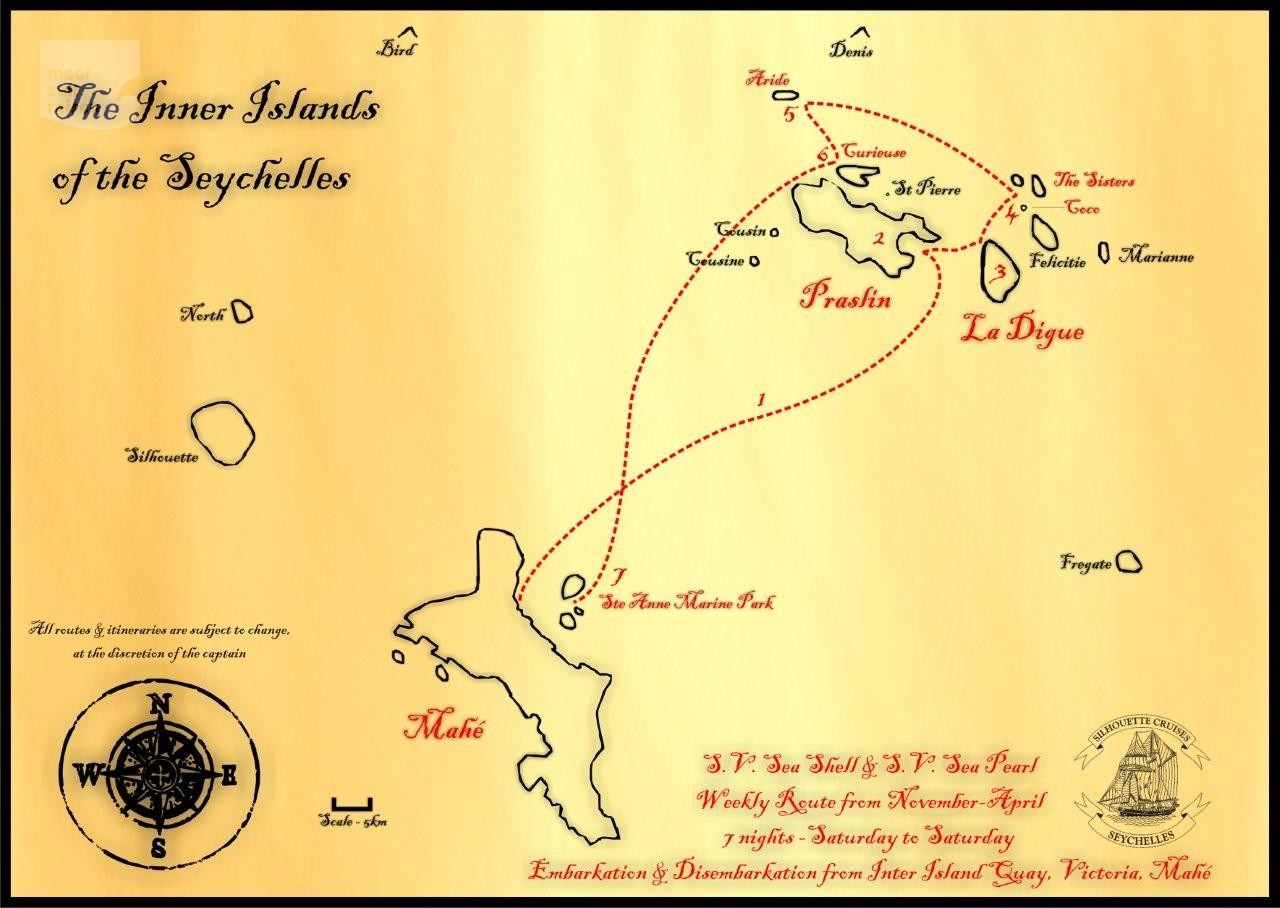 Bird
Denis
The Inner Islands
of the Seychelles
Aride
5
6
Curieuse
St Pierre
The Sisters
4
Coco
Cousin
2
Cousine
3
Felicitie
Marianne
Praslin
La Digue
North
1
Silhouette
Fregate
7
Ste Anne Marine Park
All routes & itineraries are subject to change,
at the discretion of the captain
N
W
E
S
Mahé
Scale - 5km
S.V. Sea Shell & S.V. Sea Pearl
Weekly Route from November-April
7 nights - Saturday to Saturday
Embarkation & Disembarkation from Inter Island Quay, Victoria, Mahé
SILHOUETTE CRUISES
SEYCHELLES